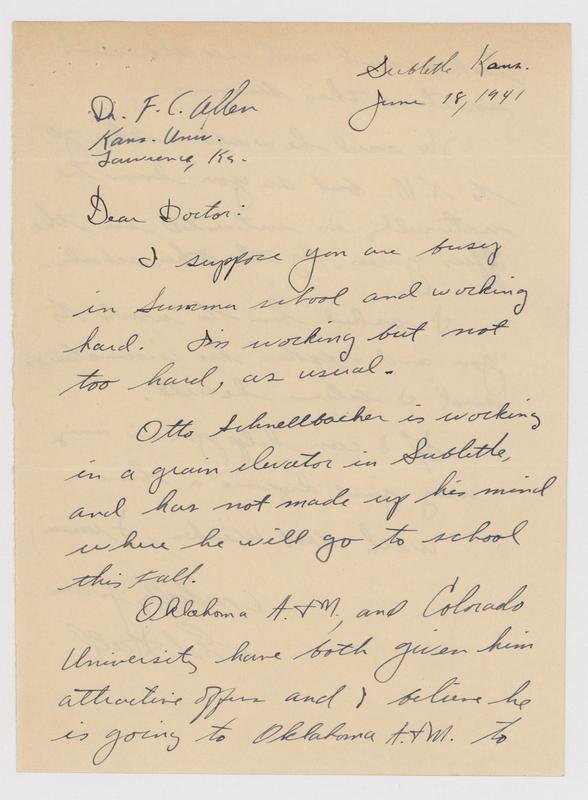 Sublette Kans.
June 18, 1941
Dr. F. C. Allen
Kans. Univ.
Lawrence, Ks.
Dear Doctor:
I suppose you are busy
in Summer school and working
hard. I'm working but not
too hard, as usual.
Otto Schnellbacher is working
in a grain elevator in Sublette,
and has not made up his mind
where he will go to school
this Fall.
Oklahoma A.+M., and Colorado
University have both given him
attractive offers and I believe he
is going to Oklahoma A.+M. to